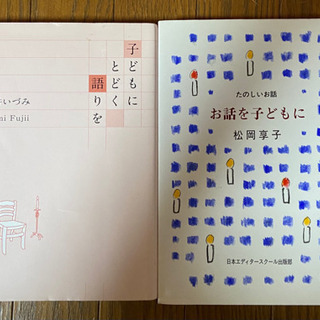 子どもに
とどく
語りを
井いづみ
mi Fujii
たのしいお話
お話を子どもに
松岡享子
日本エディタースクール出版部